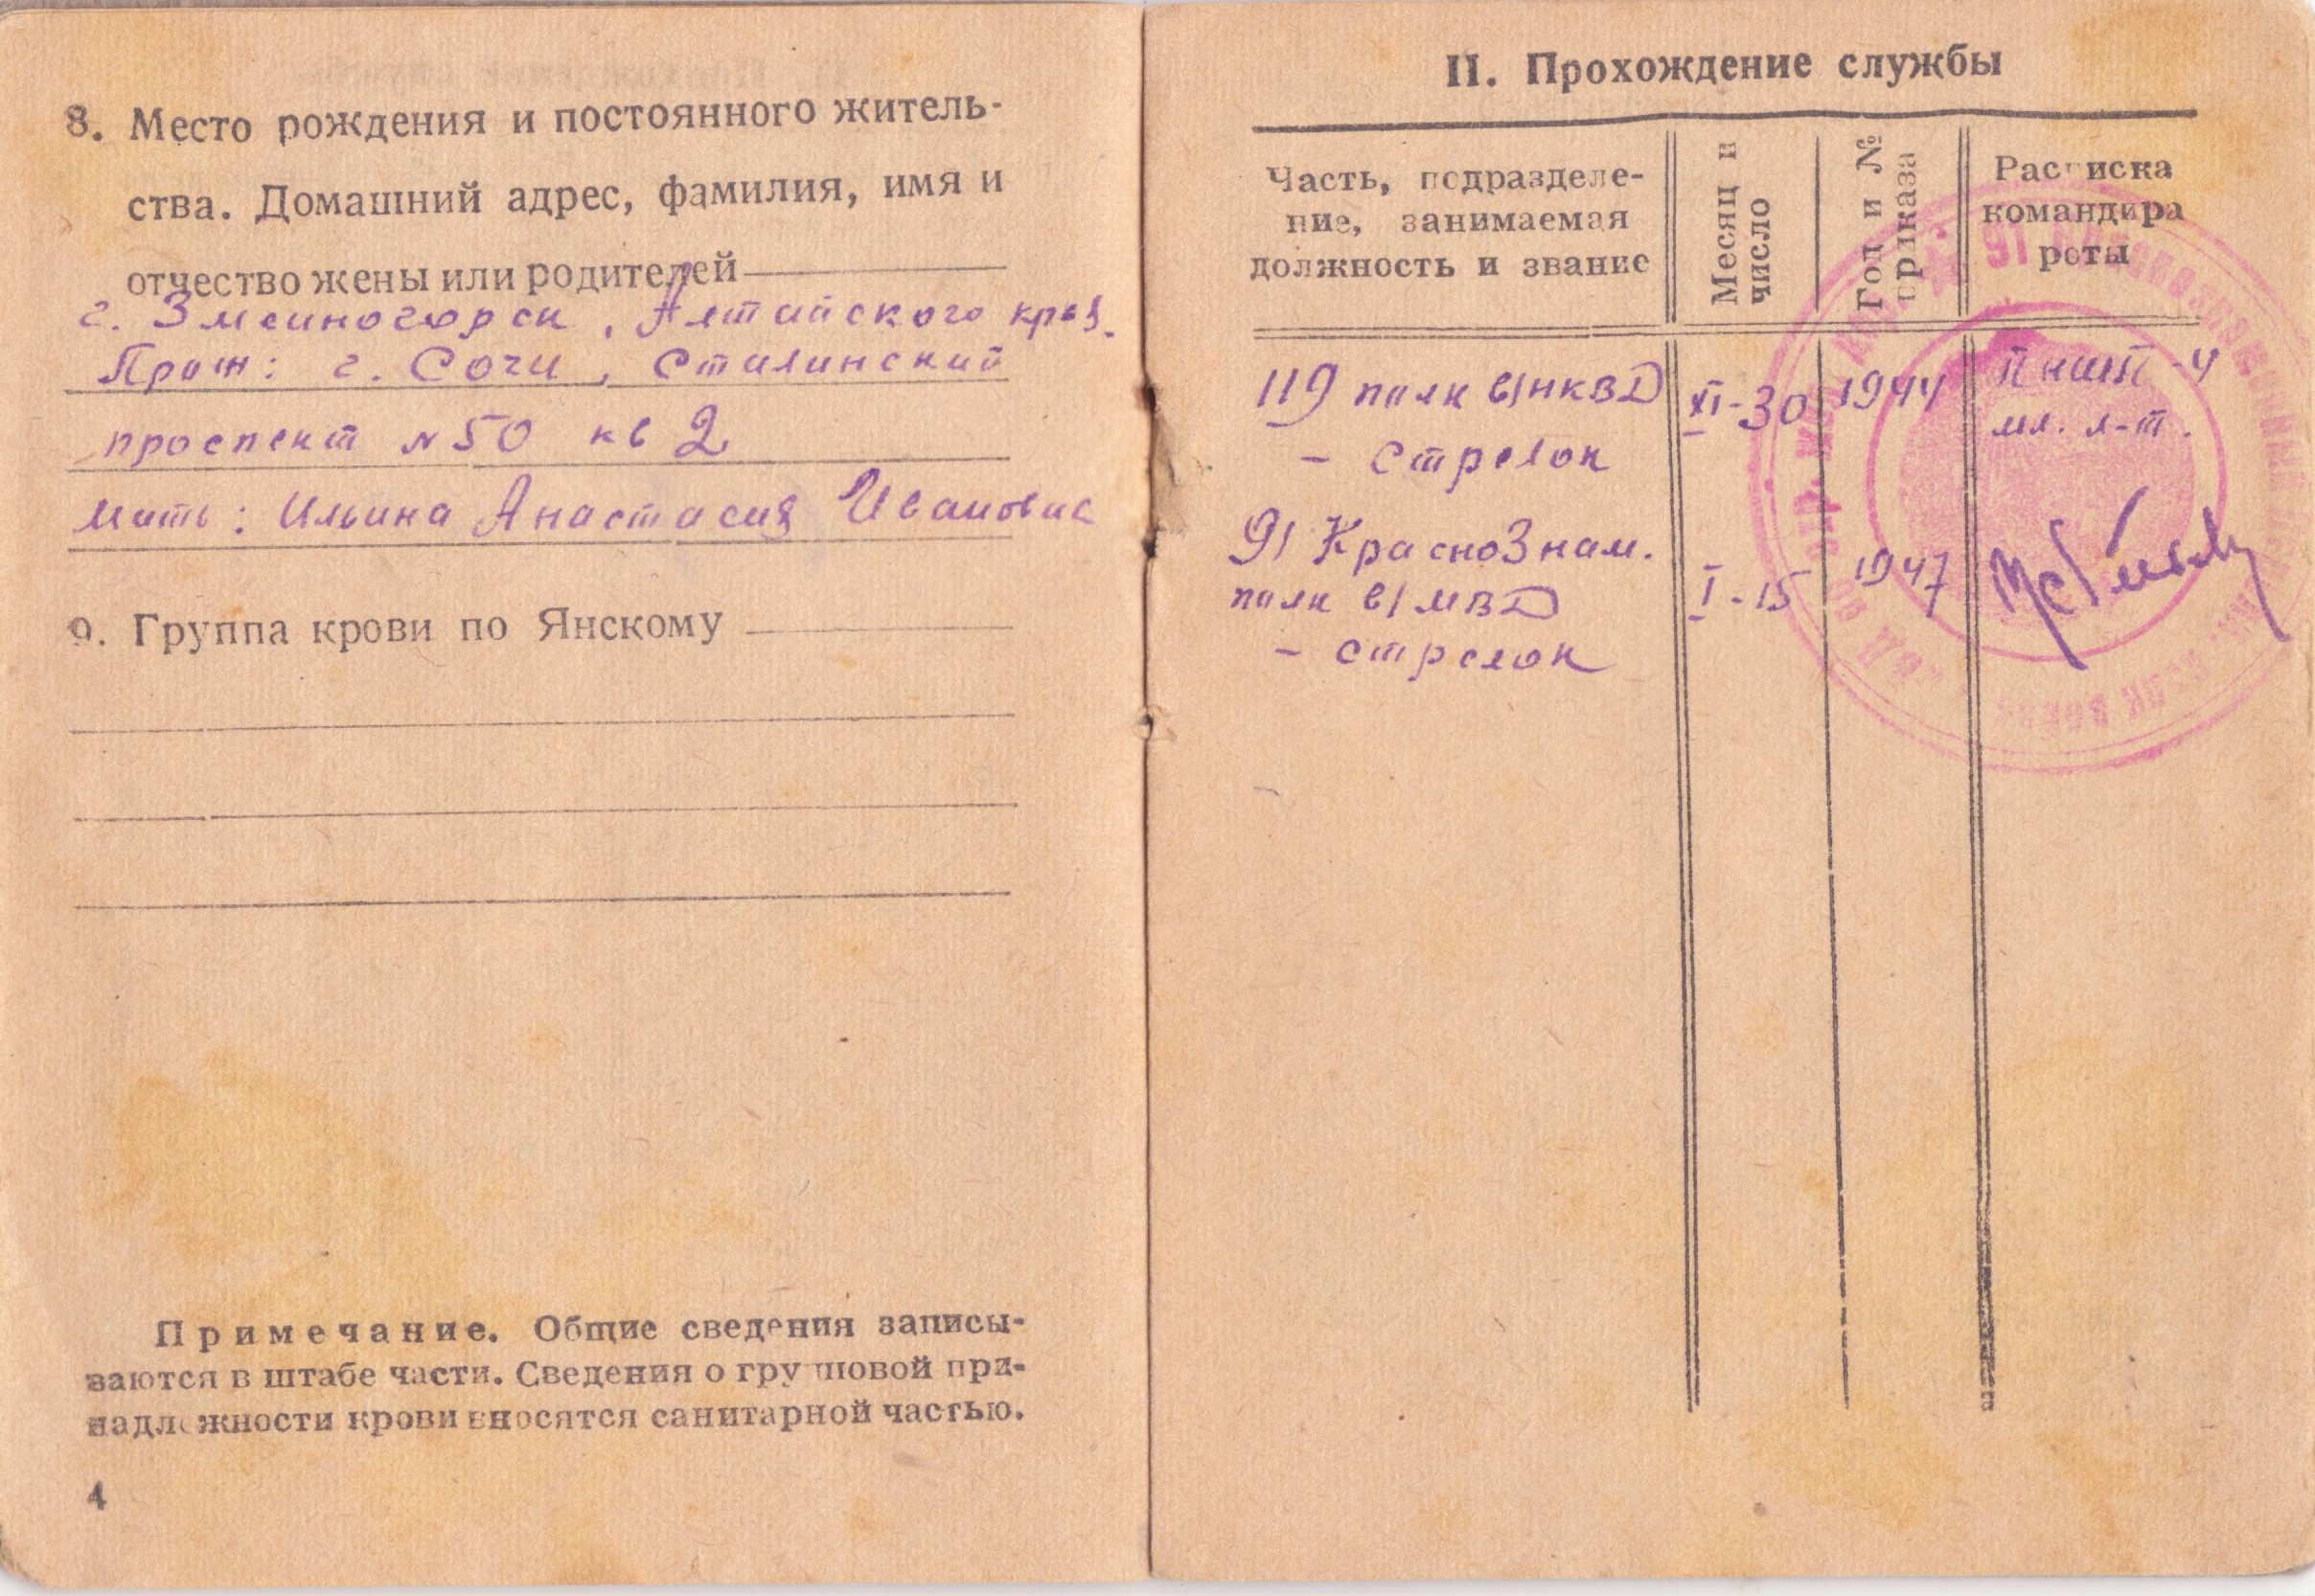 8. Место рождения и постоянного житель-
ства. Домашний адрес, фамилия, имя и
отчество жены или родителей
г. Змеиногорск, Алтайского края.
Прож: г. Сочи, Сталинский
проспект № 50 кв 2
Мать: Ильина Анастасия Ивановна
9. Группа крови по Янскому
Примечание. Общие сведения записы-
ваются в штабе части. Сведения о групповой при-
надлежности крови вносятся санитарной частью.
4
II. Прохождение службы
Часть, подразделе-
ние, занимаемая
должность и звание
Месяц и
число
Год и №
приказа
Расписка
командира
роты
119 полк в/НКВД XI-30 1944 ПНШ-4
- стрелок мл. л-т.
91 КрасноЗнам.
полк в/МВД I-15 1947
- стрелок